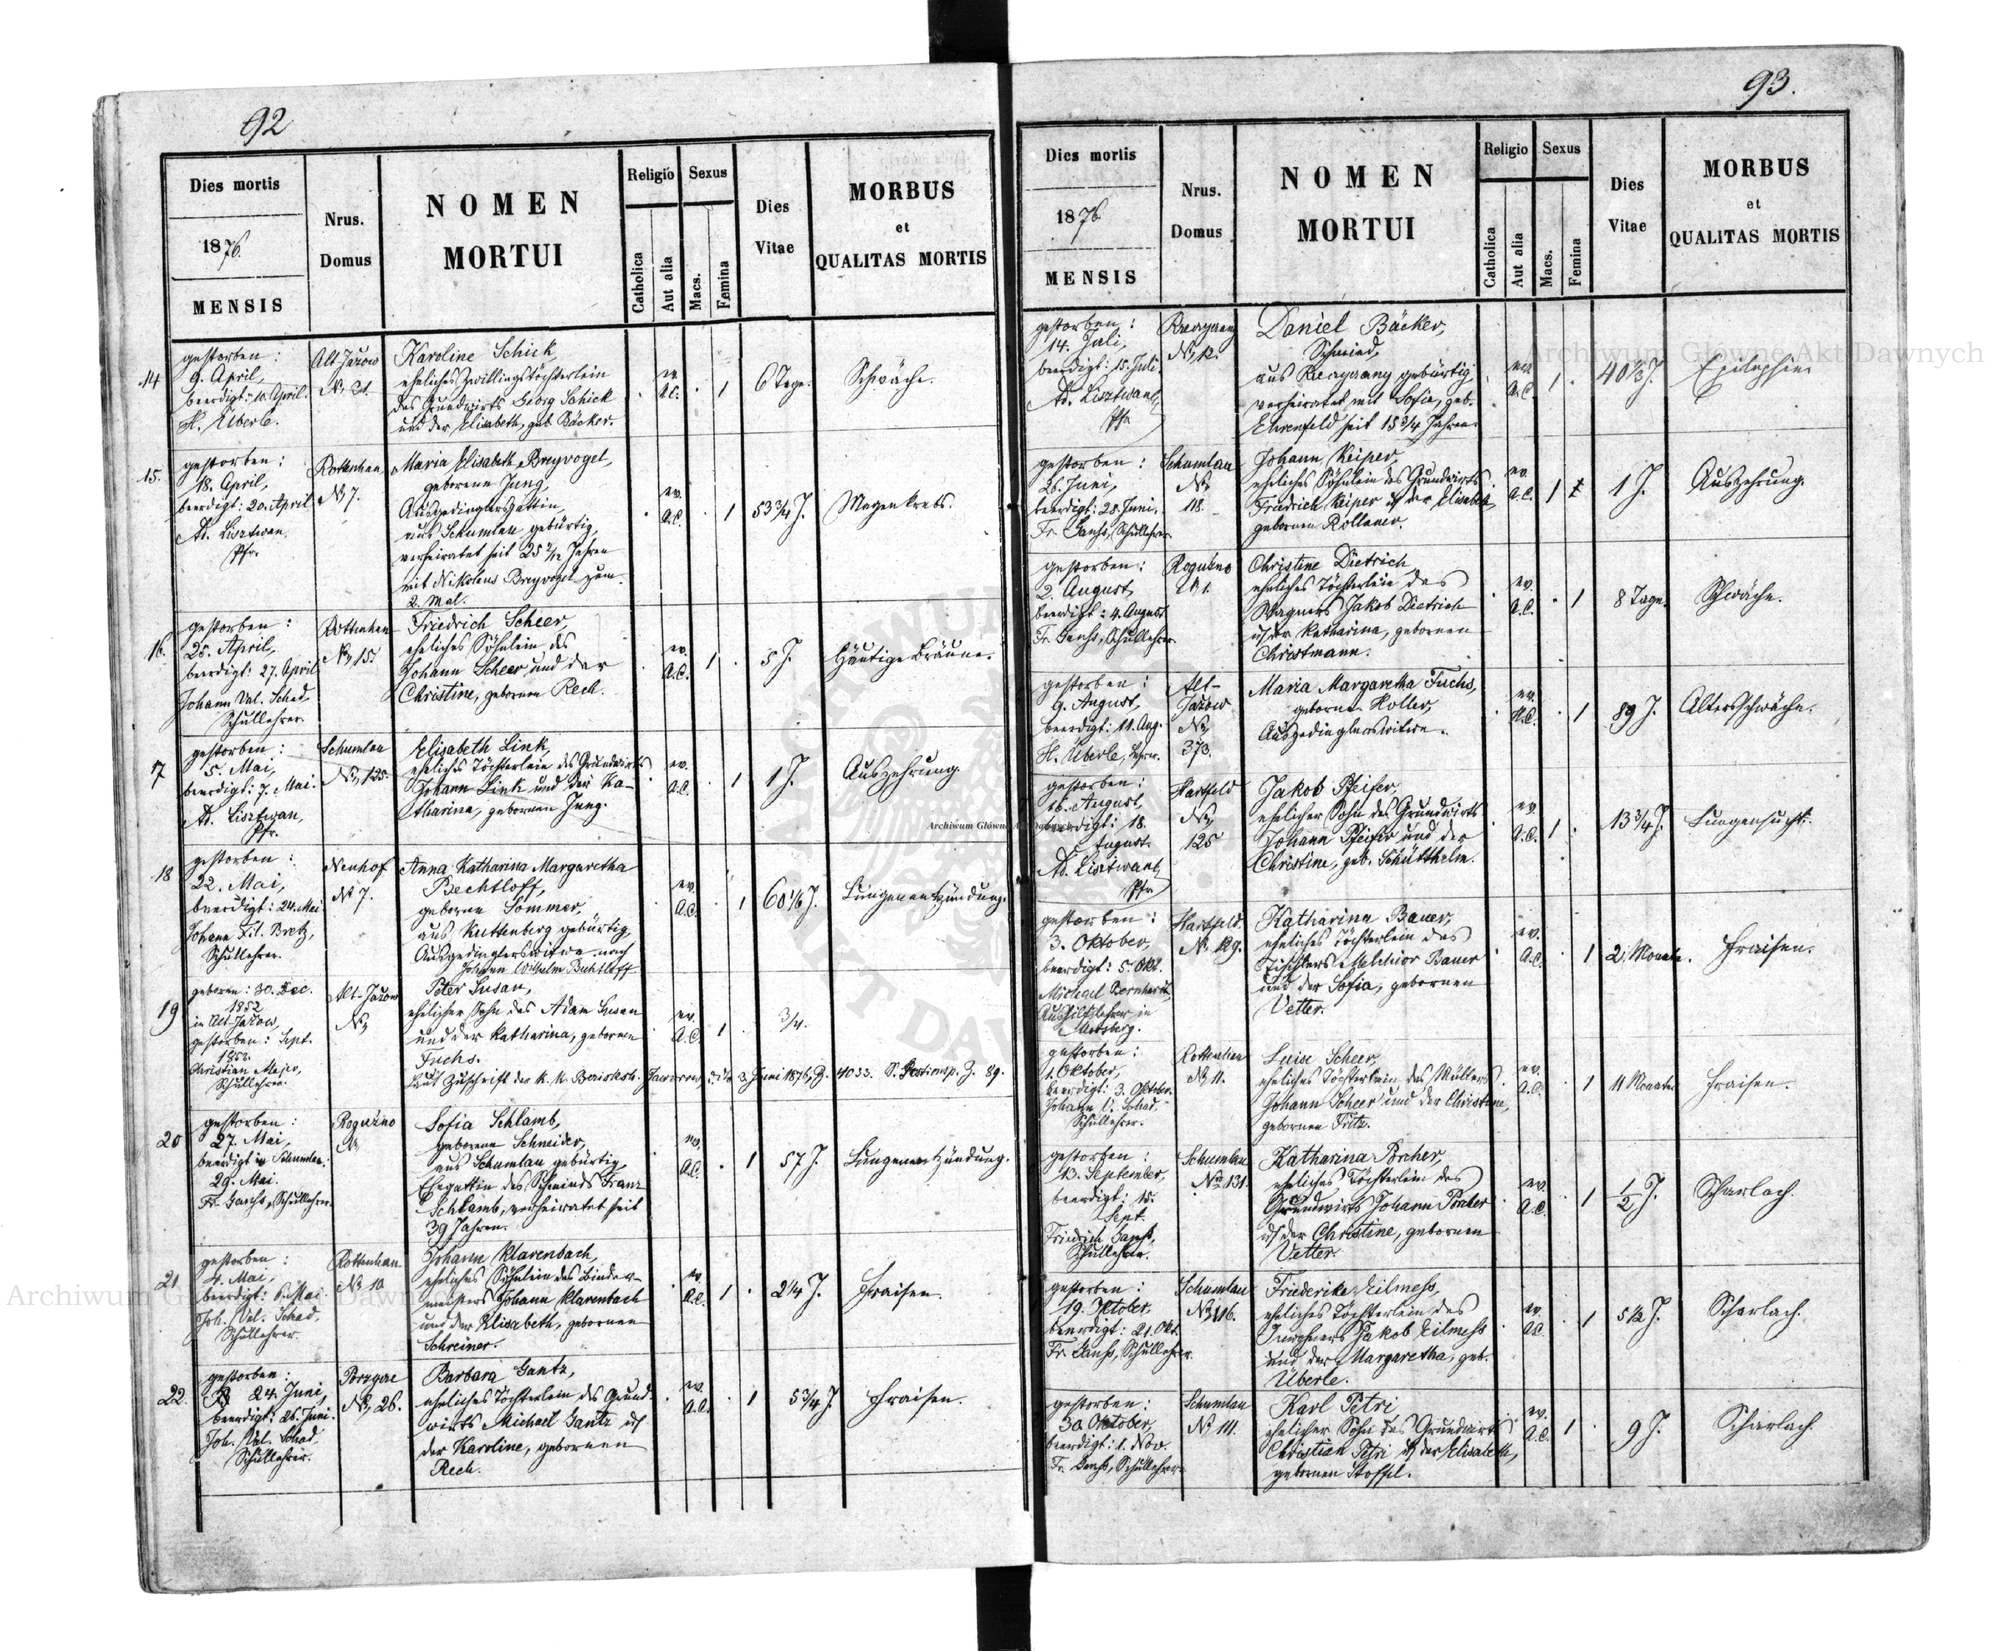 92
Dies mortis
1876.
MENSIS
Nrus.
Domus
NOMEN
MORTUI
Religio
Catholica
Aut alia
Sexus
Macs.
Femina
Dies
Vitae
MORBUS
et
QUALITAS MORTIS
14
gestorben:
9. April,
beerdigt: 10. April.
H. Überle.
Alt-Jazow
No 31.
Karoline Schick,
eheliches Zwillingstöchterlein
des Grundwirts Georg Schick
und der Elisabeth, geb. Bäcker.
ev.
A.C.
1
6 Tage.
Schwäche.
15.
gestorben:
18. April,
beerdigt: 20. April
Ad. Lisztwan,
Pfr.
Rottenhan
No 7.
Maria Elisabeth Breyvogel,
geborene Jung,
Ausgedingersgattin,
aus Schumlau gebürtig,
verheiratet seit 25 7/12 Jahren
mit Nikolaus Breyvogel zum
2. Mal.
ev.
A.C.
1
53 3/4 J.
Magenkrebs.
16.
gestorben:
25. April,
beerdigt: 27. April
Johann Val. Schad,
Schullehrer.
Rottenhan
No 15.
Friedrich Scheer,
eheliches Söhnlein des
Johann Scheer und der
Christine, gebornen Rech.
ev.
A.C.
1
5 J.
Häutige Bräune.
17
gestorben:
5. Mai,
beerdigt: 7. Mai.
Ad. Lisztwan,
Pfr.
Schumlau
No 135.
Elisabeth Link,
eheliches Töchterlein des Grundwirts
Johann Link und der Ka-
tharina, gebornen Jung.
ev.
A.C.
1
1 J.
Auszehrung.
18
gestorben:
22. Mai,
beerdigt: 24. Mai.
Johann Fil. Bretz,
Schullehrer.
Neuhof
No 7.
Anna Katharina Margaretha
Bechtloff,
geborne Sommer,
aus Kuttenberg gebürtig,
Ausgedinglerswitwe nach
Johann Wilhelm Bechtloff
ev.
A.C.
1
60 1/6 J.
Lungenentzündung.
19
geboren: 30. Dec.
1852
in Alt-Jazow,
gestorben: Sept.
1853.
Christian Majer,
Schullehrer.
Alt-Jazow
No
Peter Susan,
ehelicher Sohn des Adam Susan
und der Katharina, gebornen
Fuchs.
Laut Zuschrift der k. k. Bezirksh. Jaworow, ddto 3. Juni 1876, Z. 4033. Z. 89.
ev.
A.C.
1
3/4.
20
gestorben:
27. Mai,
beerdigt in Schumlau:
29. Mai.
Fr. Ganss, Schullehrer.
Roguźno
No
Sofia Schlamb,
geborene Schneider,
aus Schumlau gebürtig,
Ehegattin des Schmieds Franz
Schlamb, verheiratet seit
39 Jahren.
ev.
A.C.
1
57 J.
Lungenentzündung.
21
gestorben:
4. Mai,
beerdigt: 6. Mai.
Joh. Val. Schad,
Schullehrer.
Rottenhan
No 10
Johann Klarenbach,
eheliches Söhnlein des Binder-
meisters Johann Klarenbach
und der Elisabeth, gebornen
Schreiner.
ev.
A.C.
1
2 1/4 J.
Fraisen.
22.
gestorben:
24. Juni,
beerdigt: 26. Juni.
Joh. Val. Schad,
Schullehrer.
No 26.
Barbara Gantz,
eheliches Töchterlein des Grund-
wirts Michael Gantz u/
der Karoline, gebornen
Rech.
ev.
A.C.
1
5 3/4 J.
Fraisen.
93.
Dies mortis
1876
MENSIS
Nrus.
Domus
NOMEN
MORTUI
Religio
Catholica
Aut alia
Sexus
Macs.
Femina
Dies
Vitae
MORBUS
et
QUALITAS MORTIS
gestorben:
14. Juli,
beerdigt: 15. Juli.
Ad. Lisztwan,
Pfr
No 12.
Daniel Bäcker,
Schmied,
gebürtig
verheiratet mit Sofia, geb.
Ehrenfeld seit 15 3/4 Jahren.
ev.
A.C.
1
40 1/3 J.
Epilepsie
gestorben:
26. Juni,
beerdigt: 28. Juni.
Fr. Ganss, Schullehrer
Schumlau
No
118.
Johann Keiper,
eheliches Söhnlein des Grundwirts
Friedrich Keiper u/ der Elisabeth
gebornen Rollauer.
ev.
A.C.
1
1 J.
Auszehrung.
gestorben:
2. August,
beerdigt: 4. August
Fr. Ganss, Schullehrer
Roguźno
No 1.
Christine Dietrich
eheliches Töchterlein des
Wagners Jakob Dietrich
u/ der Katharina, gebornen
Christmann.
ev.
A.C.
1
8 Tage.
Schwäche.
gestorben:
9. August,
beerdigt: 11. Aug.
H. Überle, Lehrer.
Alt-
Jazow
No
373.
Maria Margaretha Fuchs,
geborne Koller,
Ausgedinglerswitwe.
ev.
A.C.
1
89 J.
Altersschwäche.
gestorben:
16. August,
beerdigt: 18.
August.
Ad. Lisztwan,
Pfr
Hartfeld
No
125
Jakob Pfeifer,
ehelicher Sohn des Grundwirts
Johann Pfeifer und der
Christine, geb. Schütthelm.
ev.
A.C.
1
13 3/4 J.
Lungensucht.
gestorben:
3. Oktober,
beerdigt: 5. Okt.
Michael Bernhardt,
Aushilfslehrer in
Hartfeld.
No 129.
Katharina Bauer,
eheliches Töchterlein des
Tischlers Melchior Bauer
und der Sofia, gebornen
Vetter.
ev.
A.C.
1
2. Monate.
Fraisen.
gestorben:
1. Oktober,
beerdigt: 3. Oktober.
Johann V. Schad
Schullehrer.
Rottenhan
No 11.
Luise Scheer,
eheliches Töchterlein des Müllers
Johann Scheer und der Christine,
gebornen Fritz.
ev.
A.C.
1
11 Monate
Fraisen.
gestorben:
13. September,
beerdigt: 15.
Sept.
Friedrich Ganss,
Schullehrer.
Schumlau
No 131.
Katharina Porcher,
eheliches Töchterlein des
Grundwirts Johann Porcher
u/ der Christine, gebornen
Vetter
ev.
A.C.
1
1/2 J.
Scharlach.
gestorben:
19. Oktober,
beerdigt: 21. Okt.
Fr. Ganss, Schullehrer.
Schumlau
No 116.
Friederike Eilmess,
eheliches Töchterlein des
Inwohners Jakob Eilmess
und der Margaretha, geb.
Überle.
ev.
A.C.
1
5 1/2 J.
Scharlach.
gestorben:
30. Oktober,
beerdigt: 1. Nov.
Fr. Ganss, Schullehrer
Schumlau
No 111.
Karl Petri
ehelicher Sohn des Grundwirts
Christian Petri u/ der Elisabeth,
gebornen Stoffel.
ev.
A.C.
1
9 J.
Scharlach
Archiwum Główne Akt Dawnych
Archiwum Główne Akt Dawnych
Archiwum Główne Akt Dawnych